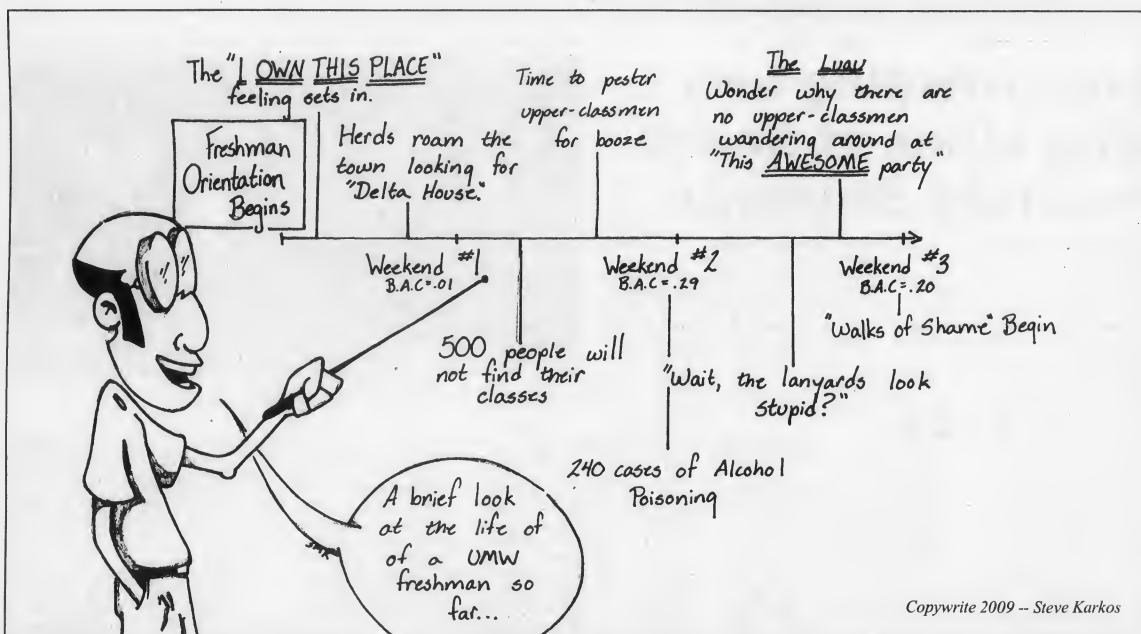 The "I OWN THIS PLACE"
feeling sets in.
Freshman
Orientation
Begins
Herds roam the
town looking for
"Delta House."
Time to pester
upper-classmen
for booze
The Luau
Wonder why there are
no upper-classmen
wandering around at
"This AWESOME party"
Weekend #1
B.A.C=.01
Weekend #2
B.A.C=.29
Weekend #3
B.A.C=.20
500 people will
not find their
classes
240 cases of Alcohol
Poisoning
"Wait, the lanyards look
stupid?"
"Walks of Shame" Begin
A brief look
at the life of
of a UMW
freshman so
far...
SMK
Copywrite 2009 -- Steve Karkos